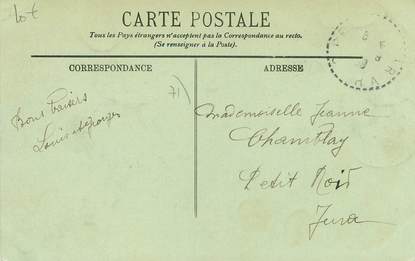 10€
CARTE POSTALE
Tous les Pays étrangers n'acceptent pas la Correspondance au recto.
(Se renseigner à la Poste).
CORRESPONDANCE
ADRESSE
71)
Bons baisers
Louis et Georges
Mademoiselle Jeanne
Chamblay
Petit Noir
Jura